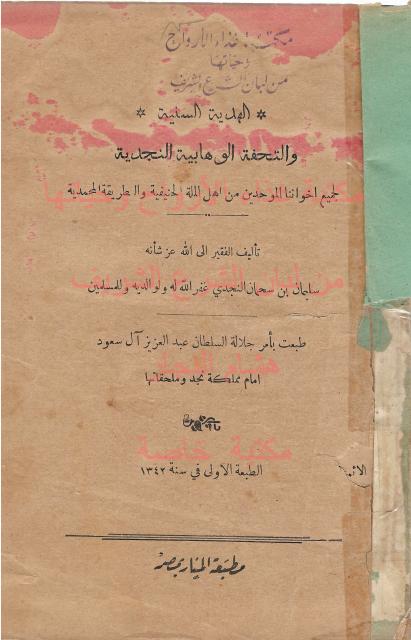 مكتبة غذاء الأرواح
وحياتها
من لبان الشرع الشريف
* الهدية السنية *
والتحفة الوهابية النجدية
لجميع اخواننا الموحدين من اهل الملة الحنيفية والطريقة المحمدية
تأليف الفقير الى الله عز شأنه
سليمان بن سحمان النجدي غفر الله له ولوالديه وللمسلمين
من لبان الشرع الشريف
طبعت بأمر جلالة السلطان عبد العزيز آل سعود
امام مملكة نجد وملحقاتها
مكتبة خاصة
الطبعة الاولى في سنة ١٣٤٢
مطبعة المنار بمصر